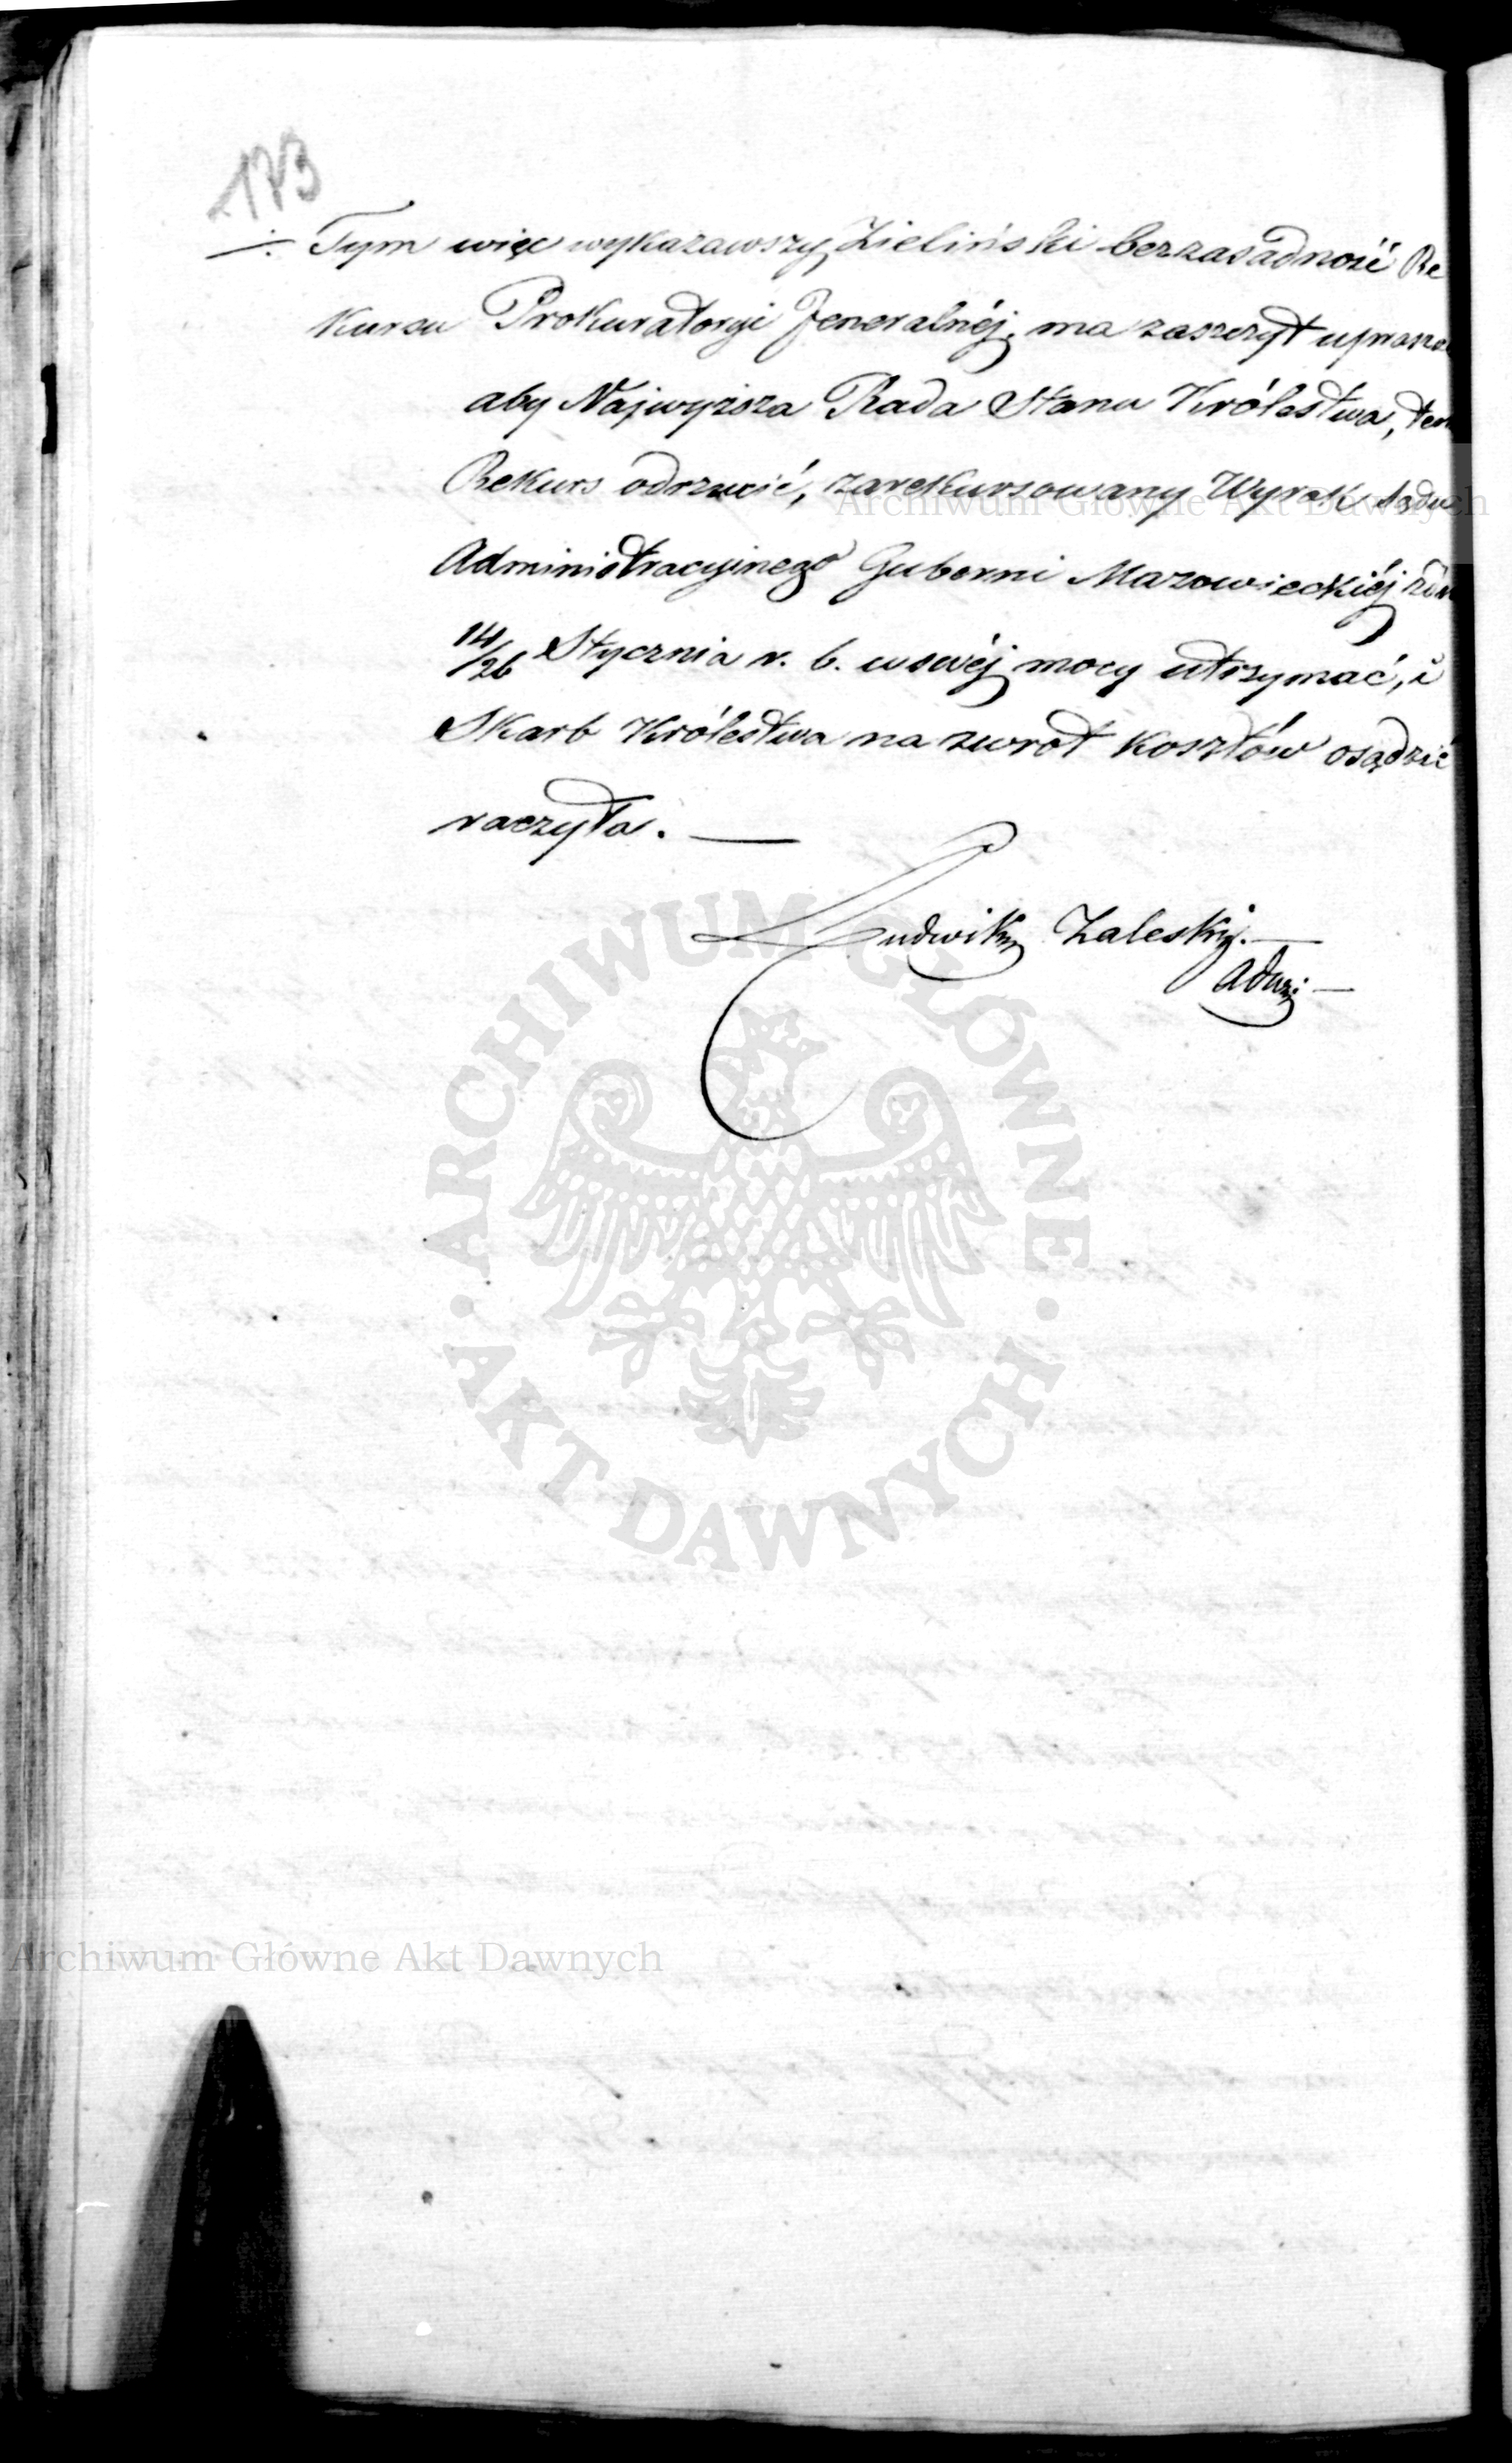 173
Tym więc wykazawszy Zieliński bezzasadność Re
Kursu Prokuratoryi Jeneralnéj, ma zaszczyt uprasza
aby Najwyższa Rada Stanu Królestwa, ten
Rekurs odrzucić, zarekursowany Wyrok Sądu
Administracyjnego Guberni Mazowieckiéj zdn
14/26 Stycznia r. b. w swéj mocy utrzymać, i
Skarb Królestwa na zwrot kosztów osądzić
raczyła. —
Ludwik Zaleski. —
Archiwum Główne Akt Dawnych
ARCHIWUM GŁÓWNE
AKT DAWNYCH
Archiwum Główne Akt Dawnych